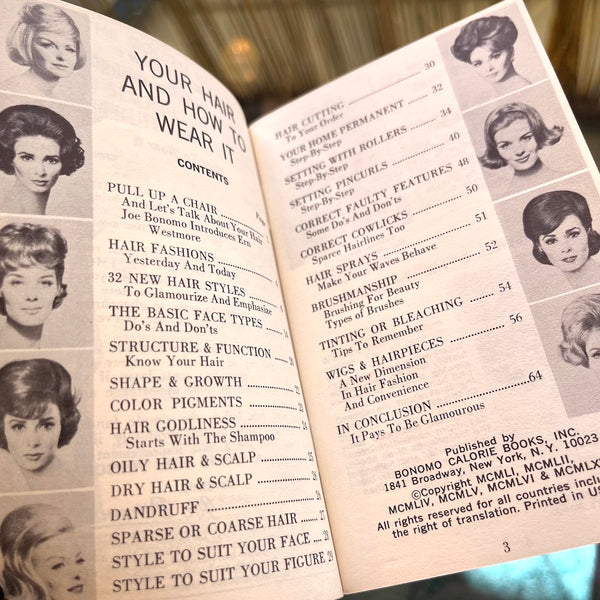 YOUR HAIR
AND HOW TO
WEAR IT
CONTENTS
PULL UP A CHAIR
And Let's Talk About Your Hair
Joe Bonomo Introduces Ern
Westmore
HAIR FASHIONS
Yesterday And Today
32 NEW HAIR STYLES
To Glamourize And Emphasize
THE BASIC FACE TYPES
Do's And Don'ts
STRUCTURE & FUNCTION
Know Your Hair
SHAPE & GROWTH
COLOR PIGMENTS
HAIR GODLINESS
Starts With The Shampoo
OILY HAIR & SCALP
DRY HAIR & SCALP
DANDRUFF
SPARSE OR COARSE HAIR 27
STYLE TO SUIT YOUR FACE 28
STYLE TO SUIT YOUR FIGURE 29
HAIR CUTTING 30
To Your Order
YOUR HOME PERMANENT 32
Step-By-Step
SETTING WITH ROLLERS 34
Step-By-Step
SETTING PINCURLS 40
Step-By-Step
CORRECT FAULTY FEATURES 48
Some Do's And Don'ts
CORRECT COWLICKS 50
Sparce Hairlines Too
HAIR SPRAYS 51
Make Your Waves Behave
BRUSHMANSHIP 52
Brushing For Beauty
Types of Brushes
TINTING OR BLEACHING 54
Tips To Remember
WIGS & HAIRPIECES 56
A New Dimension
In Hair Fashion
And Convenience
IN CONCLUSION 64
It Pays To Be Glamourous
Published by
BONOMO CALORIE BOOKS, INC.
1841 Broadway, New York, N. Y. 10023
©Copyright MCMLI, MCMLII,
MCMLIV, MCMLV, MCMLVI &
All rights reserved for all countries
the right of translation. Printed in
3